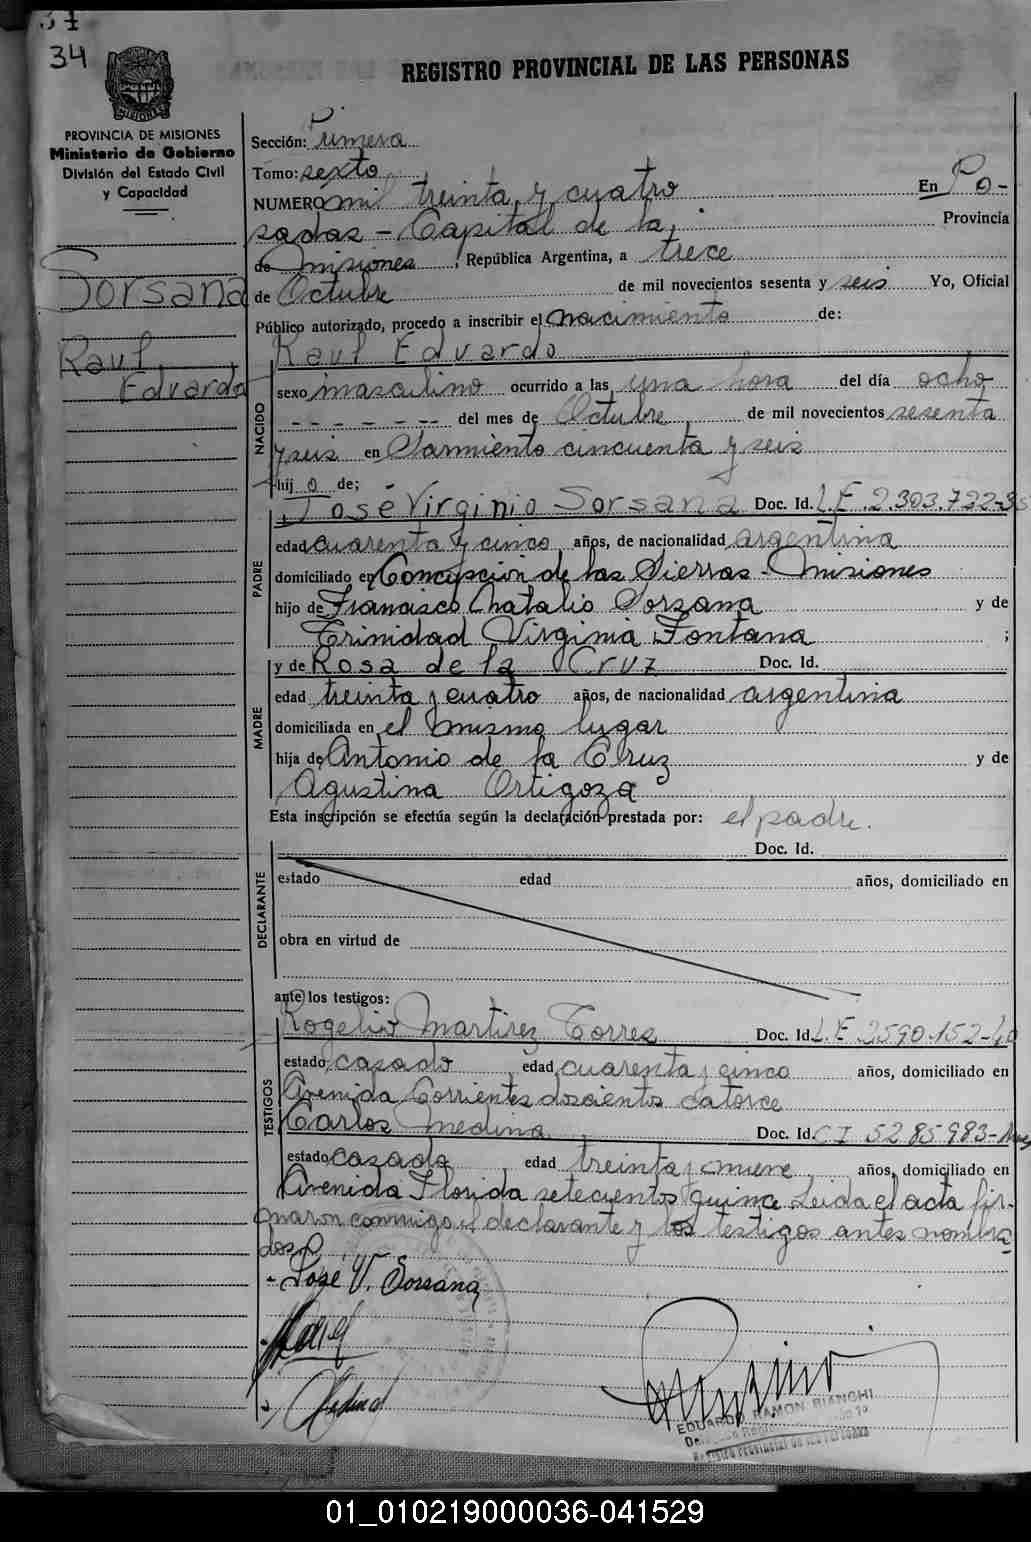 34
REGISTRO PROVINCIAL DE LAS PERSONAS
PROVINCIA DE MISIONES
Ministerio de Gobierno
División del Estado Civil
y Capacidad
Sorsana
Raul
Edvardo
Sección: Primera
Tomo: sexto
NUMERO mil treinta y cuatro En Po-
sadas - Capital de la Provincia
de Misiones, República Argentina, a trece
de Octubre de mil novecientos sesenta y seis Yo, Oficial
Público autorizado, procedo a inscribir el nacimiento de:
NACIDO
Raul Edvardo
sexo masculino ocurrido a las una hora del día ocho
- - - - - - -- del mes de Octubre de mil novecientos sesenta
y seis en Sarmiento cincuenta y seis
hij o de;
PADRE
José Virginio Sorsana Doc. Id. L.E. 2.303.722
edad cuarenta y cinco años, de nacionalidad argentina
domiciliado en Concepción de las Sierras - Misiones
hijo de Francisco Natalio Sorsana y de
Trinidad Virginia Fontana ;
MADRE
y de Rosa de la Cruz Doc. Id.
edad treinta y cuatro años, de nacionalidad argentina
domiciliada en el mismo lugar
hija de Antonio de la Cruz y de
Agustina Ortigoza
Esta inscripción se efectúa según la declaración prestada por: el padre.
DECLARANTE
Doc. Id.
estado edad años, domiciliado en
obra en virtud de
ante los testigos:
TESTIGOS
Rogelio Martirez Torres Doc. Id. L.E 2590.152-40
estado casado edad cuarenta y cinco años, domiciliado en
Avenida Corrientes doscientos catorce
Carlos Medina Doc. Id. C I 5285983-
estado casado edad treinta y nueve años, domiciliado en
Avenida Florida setecientos quince. Leida el acta fir-
maron conmigo el declarante y los testigos antes nombra-
dos
José V. Sorsana
Medina
EDUARDO RAMON BIANCHI
Registro Provincial de las Personas
01_010219000036-041529